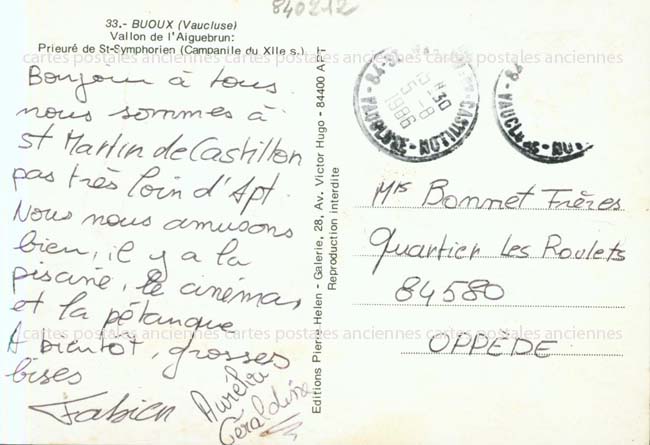 840212
33.- BUOUX (Vaucluse)
Vallon de l'Aiguebrun:
Prieuré de St-Symphorien (Campanile du XIIe s.)
cartes postales anciennes cartes postales anciennes cartes postales anciennes
Bonjour à tous
nous sommes à
St Martin de Castillon
pas très loin d'Apt.
Nous nous amusons
bien, il y a la
piscine, le cinéma,
et la pétanque
cartes postales anciennes cartes postales anciennes cartes postales anciennes
A bientôt, grosses
bises
Fabien
Aurélie
Géraldine
Editions Pierre-Helen - Galerie, 28, Av. Victor Hugo - 84400 APT
Reproduction interdite
1986
VAUCLUSE
VAUCLUSE
Mrs Bonnet Frères
Quartier Les Roulets
84580
OPPÈDE